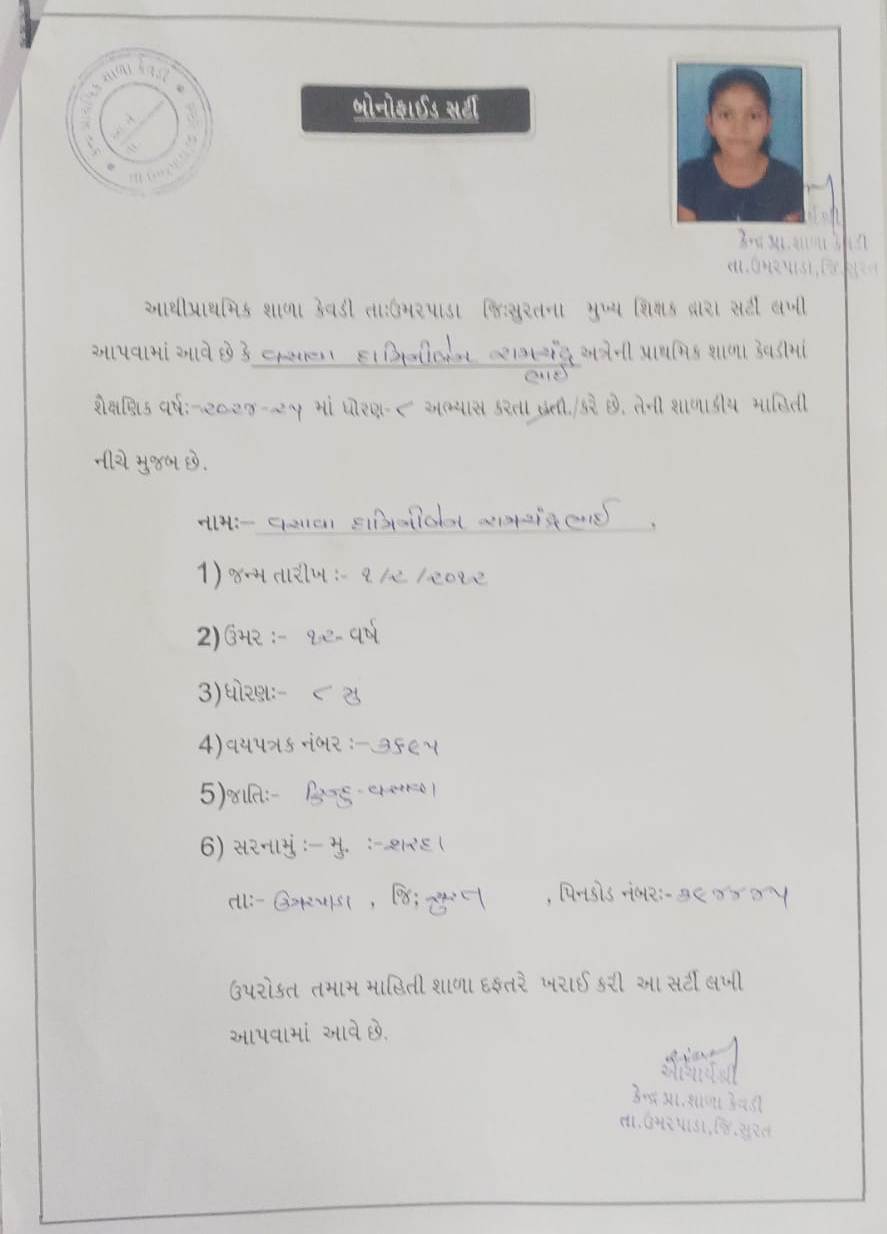 બોનોફાઈડ સર્ટી
કેન્દ્ર પ્રા.શાળા કેવડી
તા.ઉમરપાડા,જિ.સુરત
આથીપ્રાથમિક શાળા કેવડી તા:ઉંમરપાડા જિ:સુરતના મુખ્ય શિક્ષક દ્વારા સર્ટી લખી
આપવામાં આવે છે કે વસાવા દામિનીબેન રામચંદ્ર અત્રેની પ્રાથમિક શાળા કેવડીમાં
ભાઈ
શૈક્ષણિક વર્ષ:-૨૦૨૪-૨૫ માં ધોરણ-૮ અભ્યાસ કરતા હતી./કરે છે. તેની શાળાકીય માહિતી
નીચે મુજબ છે.
નામ:- વસાવા દામિનીબેન રામચંદ્રભાઈ .
1) જન્મ તારીખ :- ૧/૮/૨૦૧૨
2) ઉંમર :- ૧૨-વર્ષ
3)ધોરણ:- ૮ મુ
4)વયપત્રક નંબર :- ૩૬૯૫
5)જાતિ:- હિન્દુ-વસાવા
6) સરનામું :- મુ. :-શરદા
તા:- ઉમરપાડા , જિ; સુરત , પિનકોડ નંબર:-૩૯૪૪૪૫
ઉપરોકત તમામ માહિતી શાળા દફતરે ખરાઈ કરી આ સર્ટી લખી
આપવામાં આવે છે.
આચાર્યશ્રી
કેન્દ્ર પ્રા.શાળા કેવડી
તા.ઉમરપાડા,જિ.સુરત